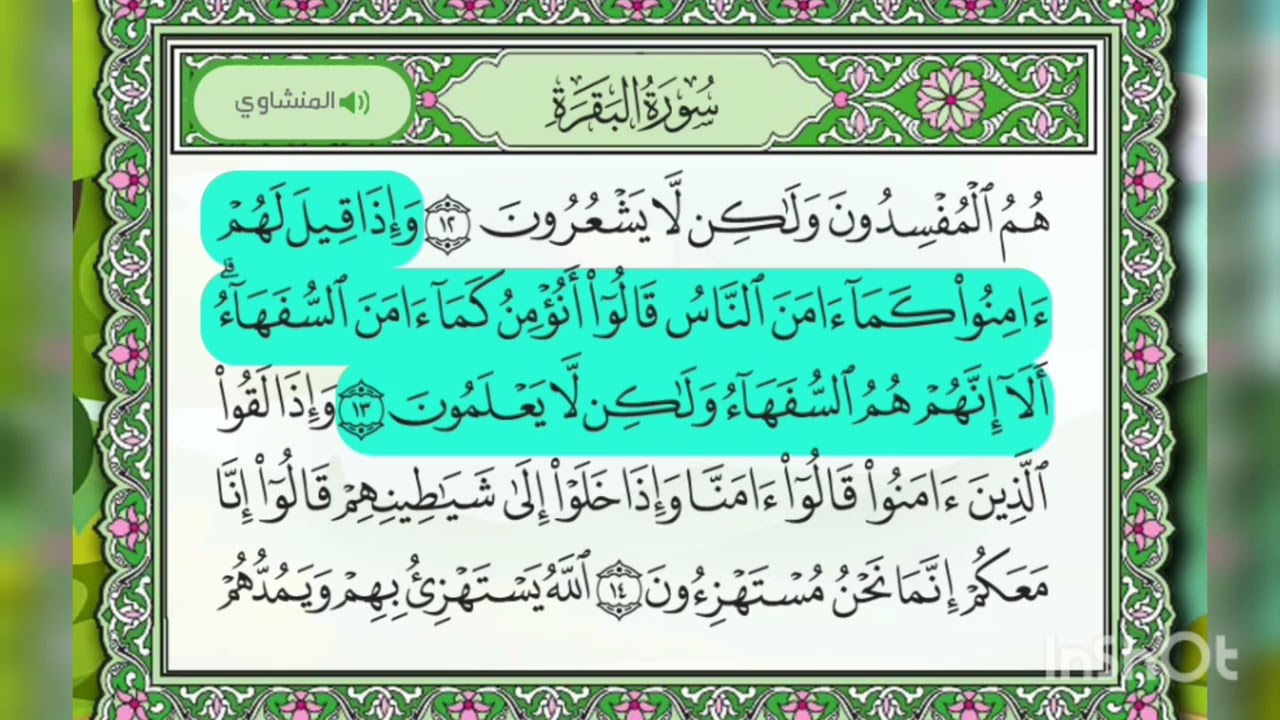 المنشاوي
سُورَةُ البَقَرَةِ
هُمُ ٱلْمُفْسِدُونَ وَلَٰكِن لَّا يَشْعُرُونَ ١٢ وَإِذَا قِيلَ لَهُمْ
ءَامِنُوا۟ كَمَآ ءَامَنَ ٱلنَّاسُ قَالُوٓا۟ أَنُؤْمِنُ كَمَآ ءَامَنَ ٱلسُّفَهَآءُ ۗ
أَلَآ إِنَّهُمْ هُمُ ٱلسُّفَهَآءُ وَلَٰكِن لَّا يَعْلَمُونَ ١٣ وَإِذَا لَقُوا۟
ٱلَّذِينَ ءَامَنُوا۟ قَالُوٓا۟ ءَامَنَّا وَإِذَا خَلَوْا۟ إِلَىٰ شَيَٰطِينِهِمْ قَالُوٓا۟ إِنَّا
مَعَكُمْ إِنَّمَا نَحْنُ مُسْتَهْزِءُونَ ١٤ ٱللَّهُ يَسْتَهْزِئُ بِهِمْ وَيَمُدُّهُمْ
InShOt